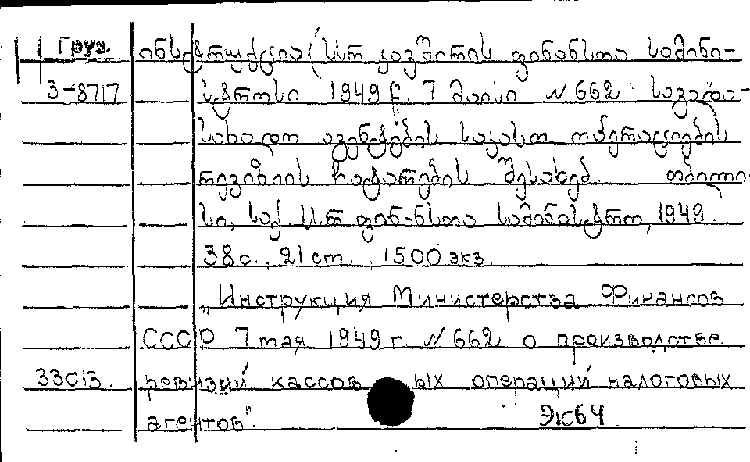 Груз. ინსტრუქცია სსრ კავშირის ფინანსთა სამინი-
3-8717 სტროსი 1949 წ. 7 მაისი N 662 საგადა-
სახადო აგენტების საკასო ოპერაციების
რევიზიის ჩატარების შესახებ. თბილი-
სი, საქ. სსრ ფინ-ნსთა სამინისტრო, 1949.
38с., 21 cm., 1500 экз.
„Инструкция Министерства Финансов
СССР 7 мая 1949 г. N 662 о производстве
ревизий кассовых операций налоговых
агентов".